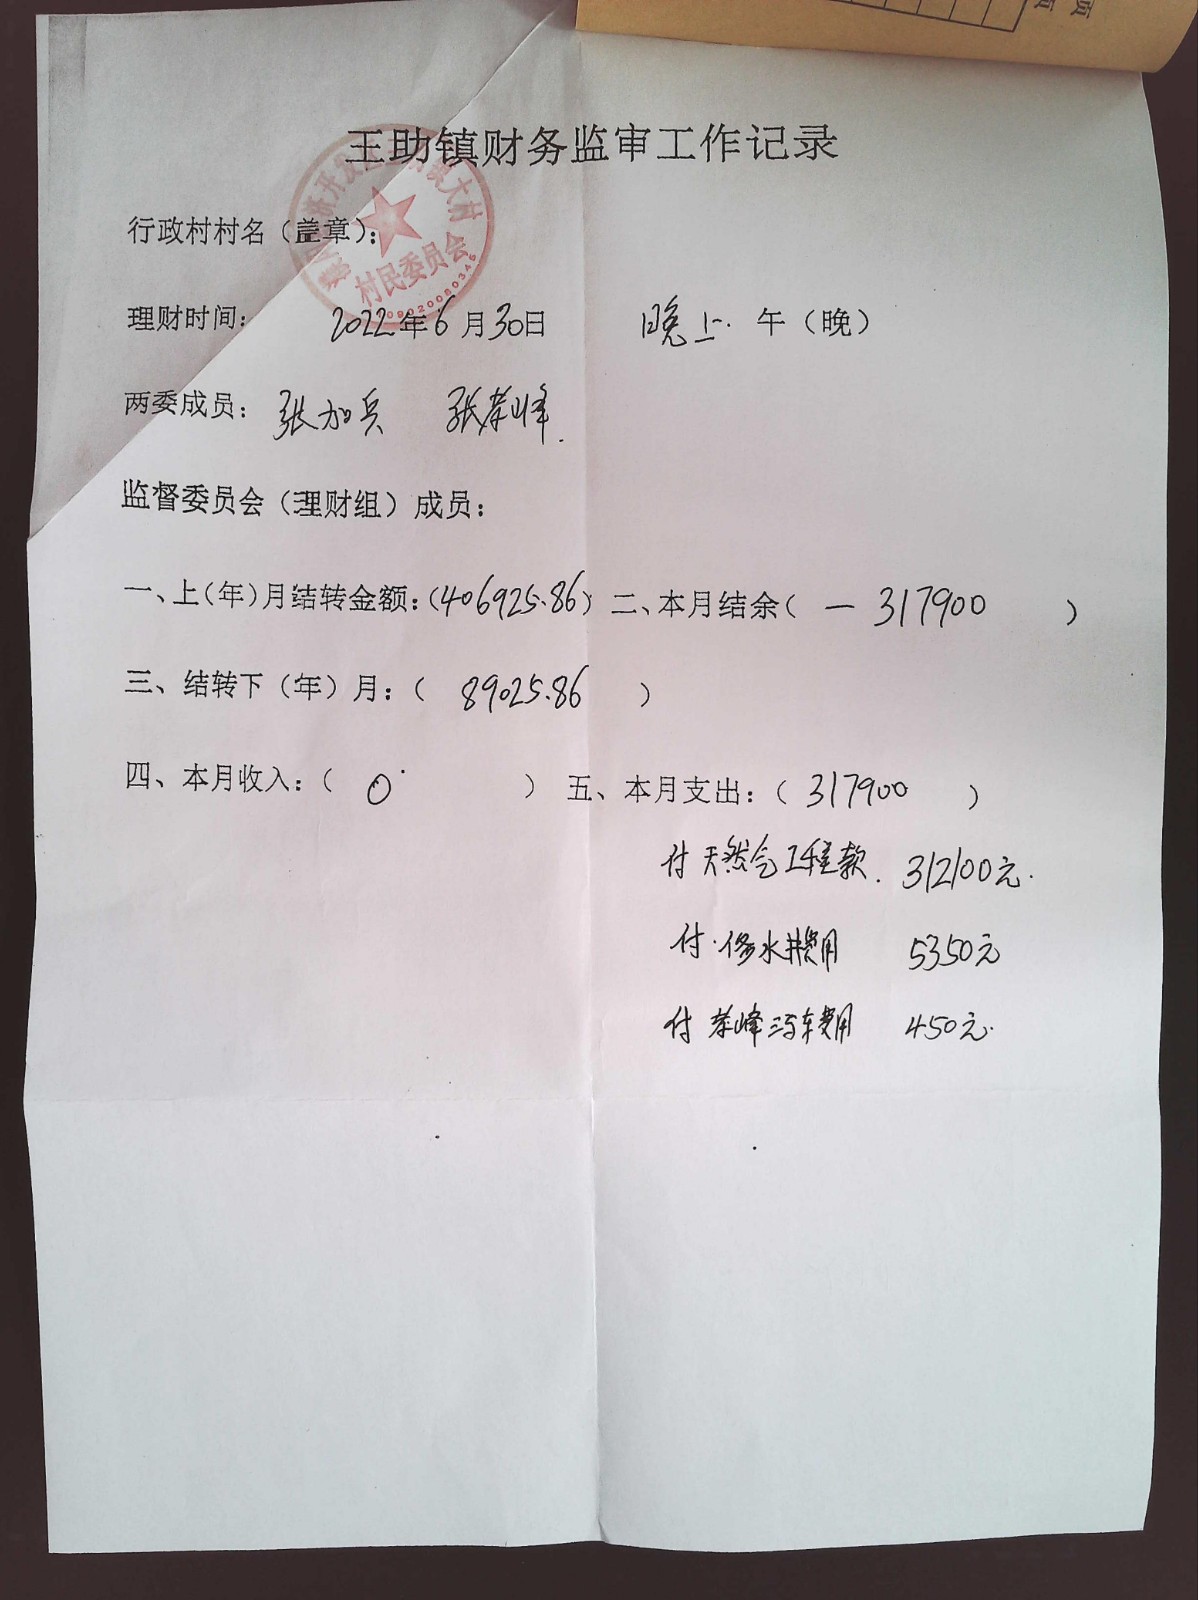 页 页
王助镇财务监审工作记录
行政村村名（盖章）：
村民委员会
理财时间： 2022年6月30日 晚上. 午（晚）
两委成员： 张加兵 张荣峰.
监督委员会（理财组）成员：
一、上（年）月结转金额：（406925.86） 二、本月结余（ — 317900 ）
三、结转下（年）月：（ 89025.86 ）
四、本月收入：（ 0 ） 五、本月支出：（ 317900 ）
付天然气工程款. 312100元.
付.修水井费用 5350元
付 荣峰 车费用 450元.